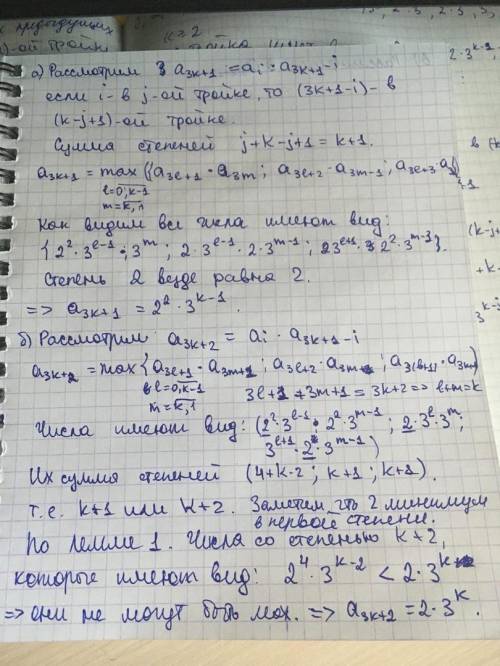 предыдущих
-ой тройк
k=2
2·3^{k-1}
а) Рассмотрим a_{3k+1} = a_i · a_{3k+1-i}
если i - в j-ой тройке, то (3k+1-i) - в
(k-j+1)-ой тройке.
Сумма степеней j+k-j+1 = k+1.
a_{3k+1} = max{(a_{3l+1} · a_{3m}; a_{3l+2} · a_{3m-1}; a_{3l+3} ·
l=0,k-1
m=k,1
Как видим все числа имеют вид:
{2²·3^{l-1}·3^m; 2·3^{l-1}·2·3^{m-1}; 3^{l+1}·2²·3^{m-1}}.
Степень 2 везде равна 2.
=> a_{3k+1} = 2²·3^{k-1}.
б) Рассмотрим a_{3k+2} = a_i · a_{3k+1-i}
a_{3k+2} = max{a_{3l+1} · a_{3m+1}; a_{3l+2} · a_{3m}; a_{3(l+1)} ·
l=0,k-1
m=k,1
3l+1+3m+1=3k+2 => l+m=k
Числа имеют вид: (2²·3^{l-1}·2²·3^{m-1}; 2·3^l·3^m;
3^{l+1}·2·3^{m-1})
Их сумма степеней (4+k-2; k+1; k+1).
т.е. k+1 или k+2. Заметим что 2 минимум
в первой степени.
По лемме 1. Числа со степенью k+2,
которые имеют вид: 2⁴·3^{k-2} < 2·3^k
=> они не могут быть мах. => a_{3k+2} = 2·3^k.